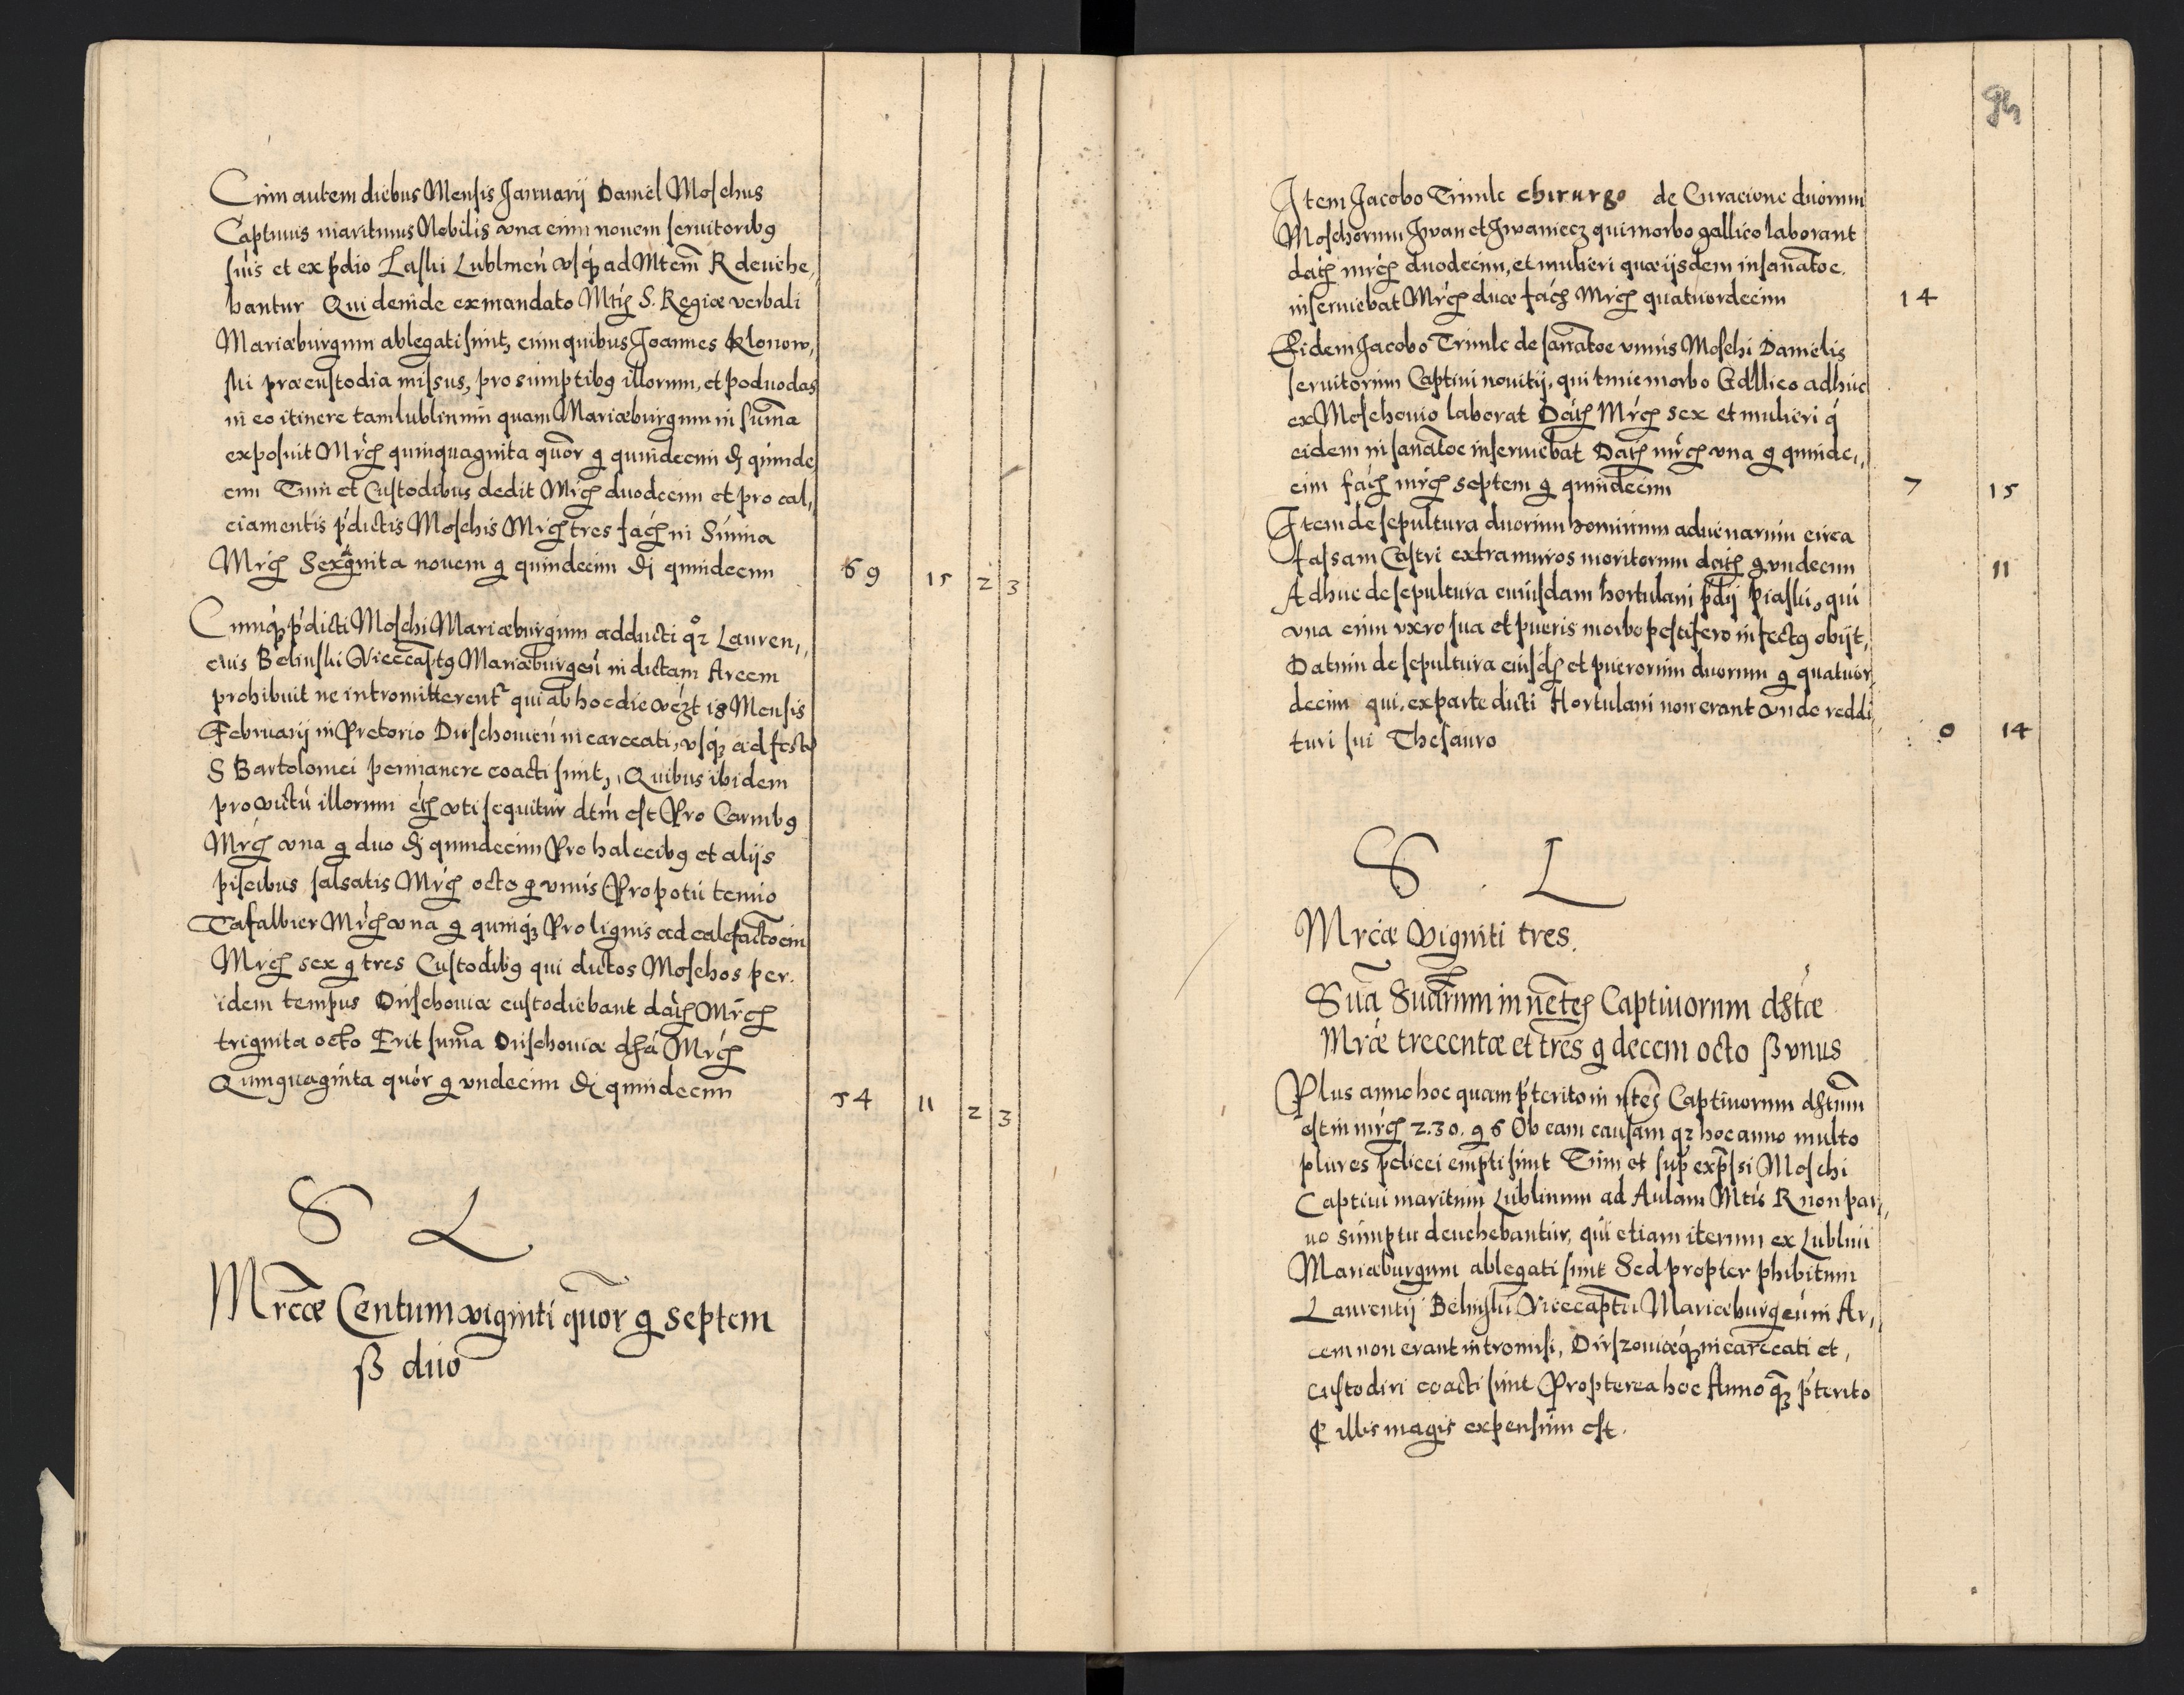 Cum autem diebus Mensis Januarij Daniel Moschus
Captivus maritimus Nobilis vna cum novem servitoribꝯ
suis et ex p̃dio Laski Lublineñ vsq̃ ad Mtem̃ R devehe,
bantur Qui deinde ex mandato Mtis S. Regiæ verbali
Mariæburgum ablegati sunt, cum quibus Joannes Klonow,
ski præ custodia missus, pro sumptibꝯ illorum, et poduodas
in eo itinere tam lublinum quam Mariæburgum in sum̃a
exposuit Mrc̃ quinquaginta quõr g quindecim d̃ quinde
cim Tum et Custodibus dedit Mrc̃ duodecim et pro cal,,
ciamentis p̃dictis Moschis Mrc̃ tres fac̃ in Sum̃a
Mrc̃ Sexaginta novem g quindecim d̃ quindecim 69 15 2 3
Cumq̃ p̃dicti Moschi Mariæburgum adducti qr Lauren,,
cius Belinski Vicecaptꝯ Mariæburgeñ in dictam Arcem
prohibuit ne intromitterentr qui ab hoc die vcz̃t 18 Mensis
Februarij in Pretorio Dirschovieñ incarcerati, vsq̃ ad fest
S Bartolomei permanere coacti sunt, Quibus ibidem
pro victu illorum vti sequitur dtm̃ est Pro Carnibꝯ
Mrc̃ vna g duo d̃ quindecim Pro halecibꝯ et alijs
piscibus salsatis Mrc̃ octo g vnus Pro potu tenuio
Tafalbier Mrc̃ vna g quinq̃ Pro lignis ad calefactoẽm
Mrc̃ sex g tres Custodibꝯ qui dictos Moschos per
idem tempus Dirschoviæ custodiebant dat̃ Mrc̃
triginta octo Erit sum̃a Dirschoviæ Mrc̃
Quinquaginta quõr g vndecim d̃ quindecim 54 11 2 3
S L
Mrcæ Centum viginti quõr g septem
ß duo
Item Jacobo Trimle chirurgo de Curacione duorum
Moschorum Iwan et Iwaniecz qui morbo gallico laborant
dat̃ mrc̃ duodecim, et mulieri quæ ijsdem in sanatõe
inserviebat Mrc̃ duæ fac̃ Mrc̃ quatuordecim 14
Eidem Jacobo Trimle de sanatõe vnius Moschi Danielis
servitorum Captivi novitij, qui tunc morbo Gallico adhuc
ex Moschovio laborat Dat̃ Mrc̃ sex et mulieri q̃
eidem in sanatõe inserviebat Dat̃ mrc̃ vna g quinde,,
cim fac̃ mrc̃ septem g quindecim 7 15
Item de sepultura duorum hominum advenarum circa
fassam Castri extra muros moritorum dat̃ g vndecim 11
Adhuc de sepultura cuiusdam hortulani p̃dij Piaski, qui
vna cum vxro sua et pueris morbo pestifero infectꝯ obijt,
Datum de sepultura eiusd̃ et puerorum duorum g quatuor
decim qui, ex parte dicti Hortulani non erant vnde reddi
turi sui Thesauro 0 14
S L
Mrcæ Viginti tres.
Sum̃a Sum̃arum in Captivorum dstæ
Mrcæ trecentæ et tres g decem octo ß vnus
Plus anno hoc quam p̃terito in Captivorum
est in mrc̃ 2.30. g 6 Ob eam causam qr hoc anno multo
plures pedicei empti sunt Tum et sup̃ exp̃ssi Moschi
Captivi maritum Lublinum ad Aulam Mtis R non par,,
vo sumptu devehebantur, qui etiam iterum ex Lublini
Mariæburgum ablegati sunt Sed propter phibitum
Laurentij Belinski Vicecaptei Mariæburgeñ in Ar,,
cem non erant intromisi, Dirszoviæq̃ incarcerati et,
custodiri coacti sunt Propterea hoc Anno q̃ p̃terito
illis magis expensum est.